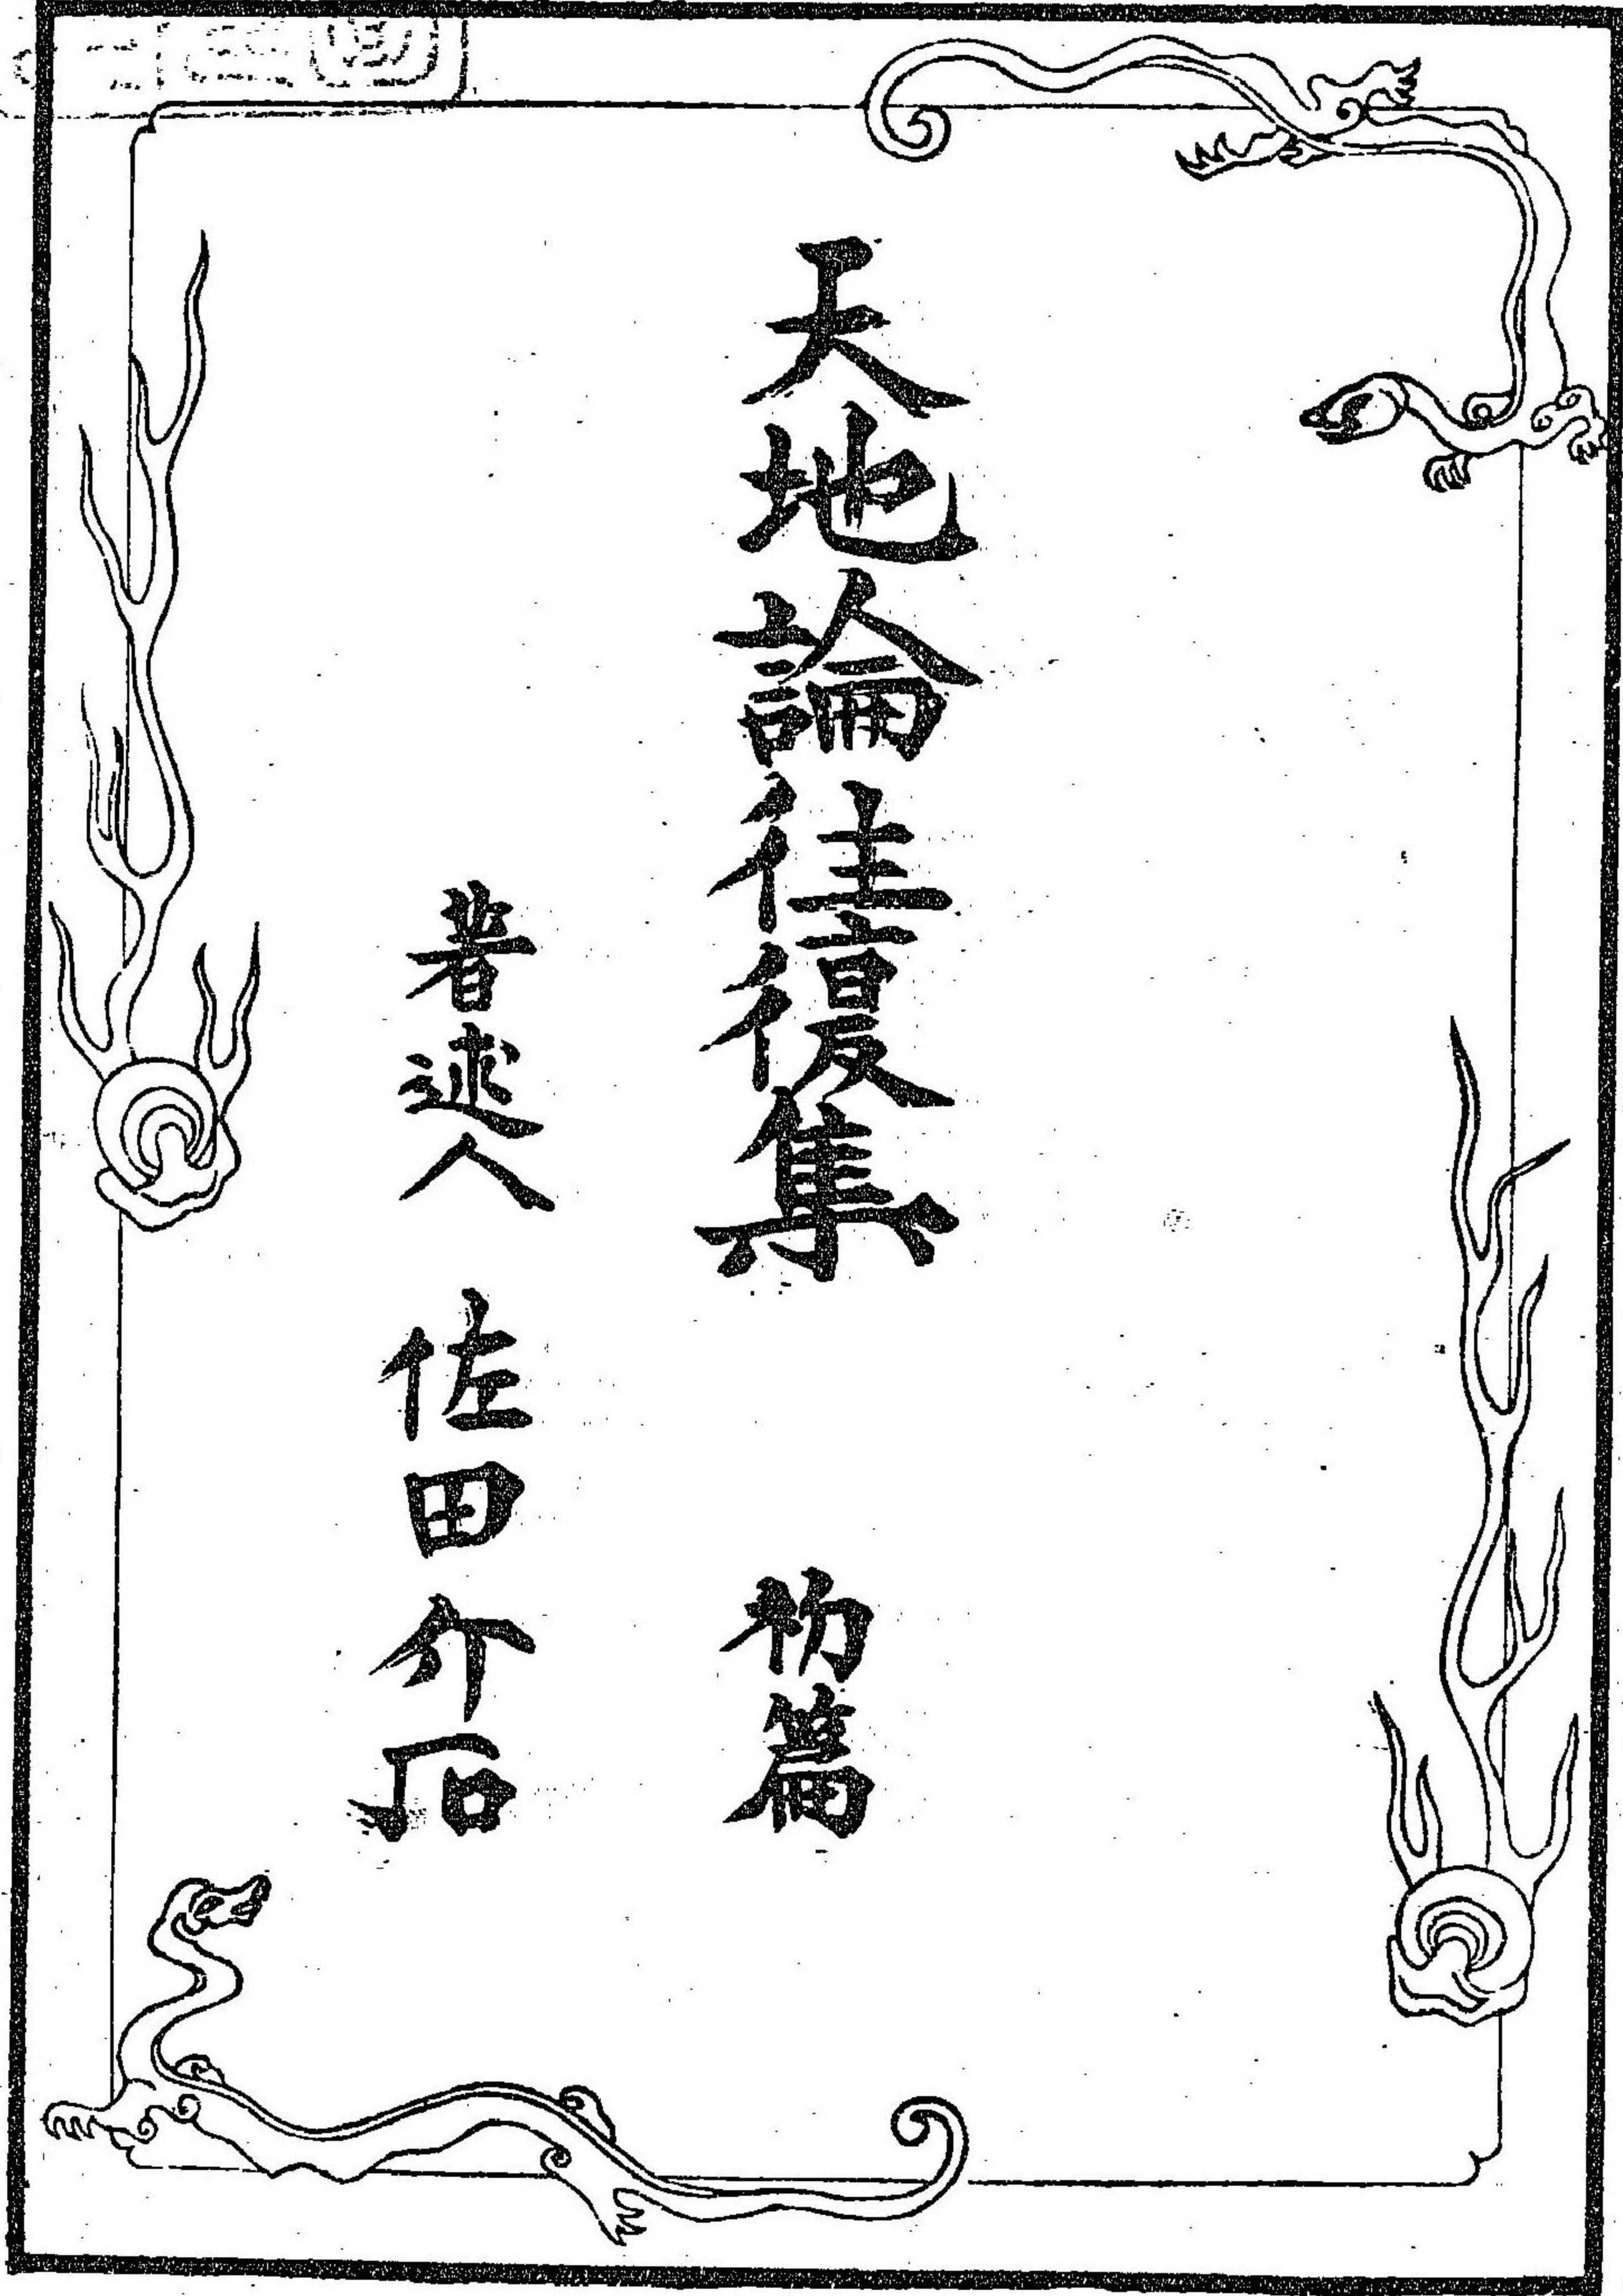 天地論往復集 初篇
著述人 佐田介石